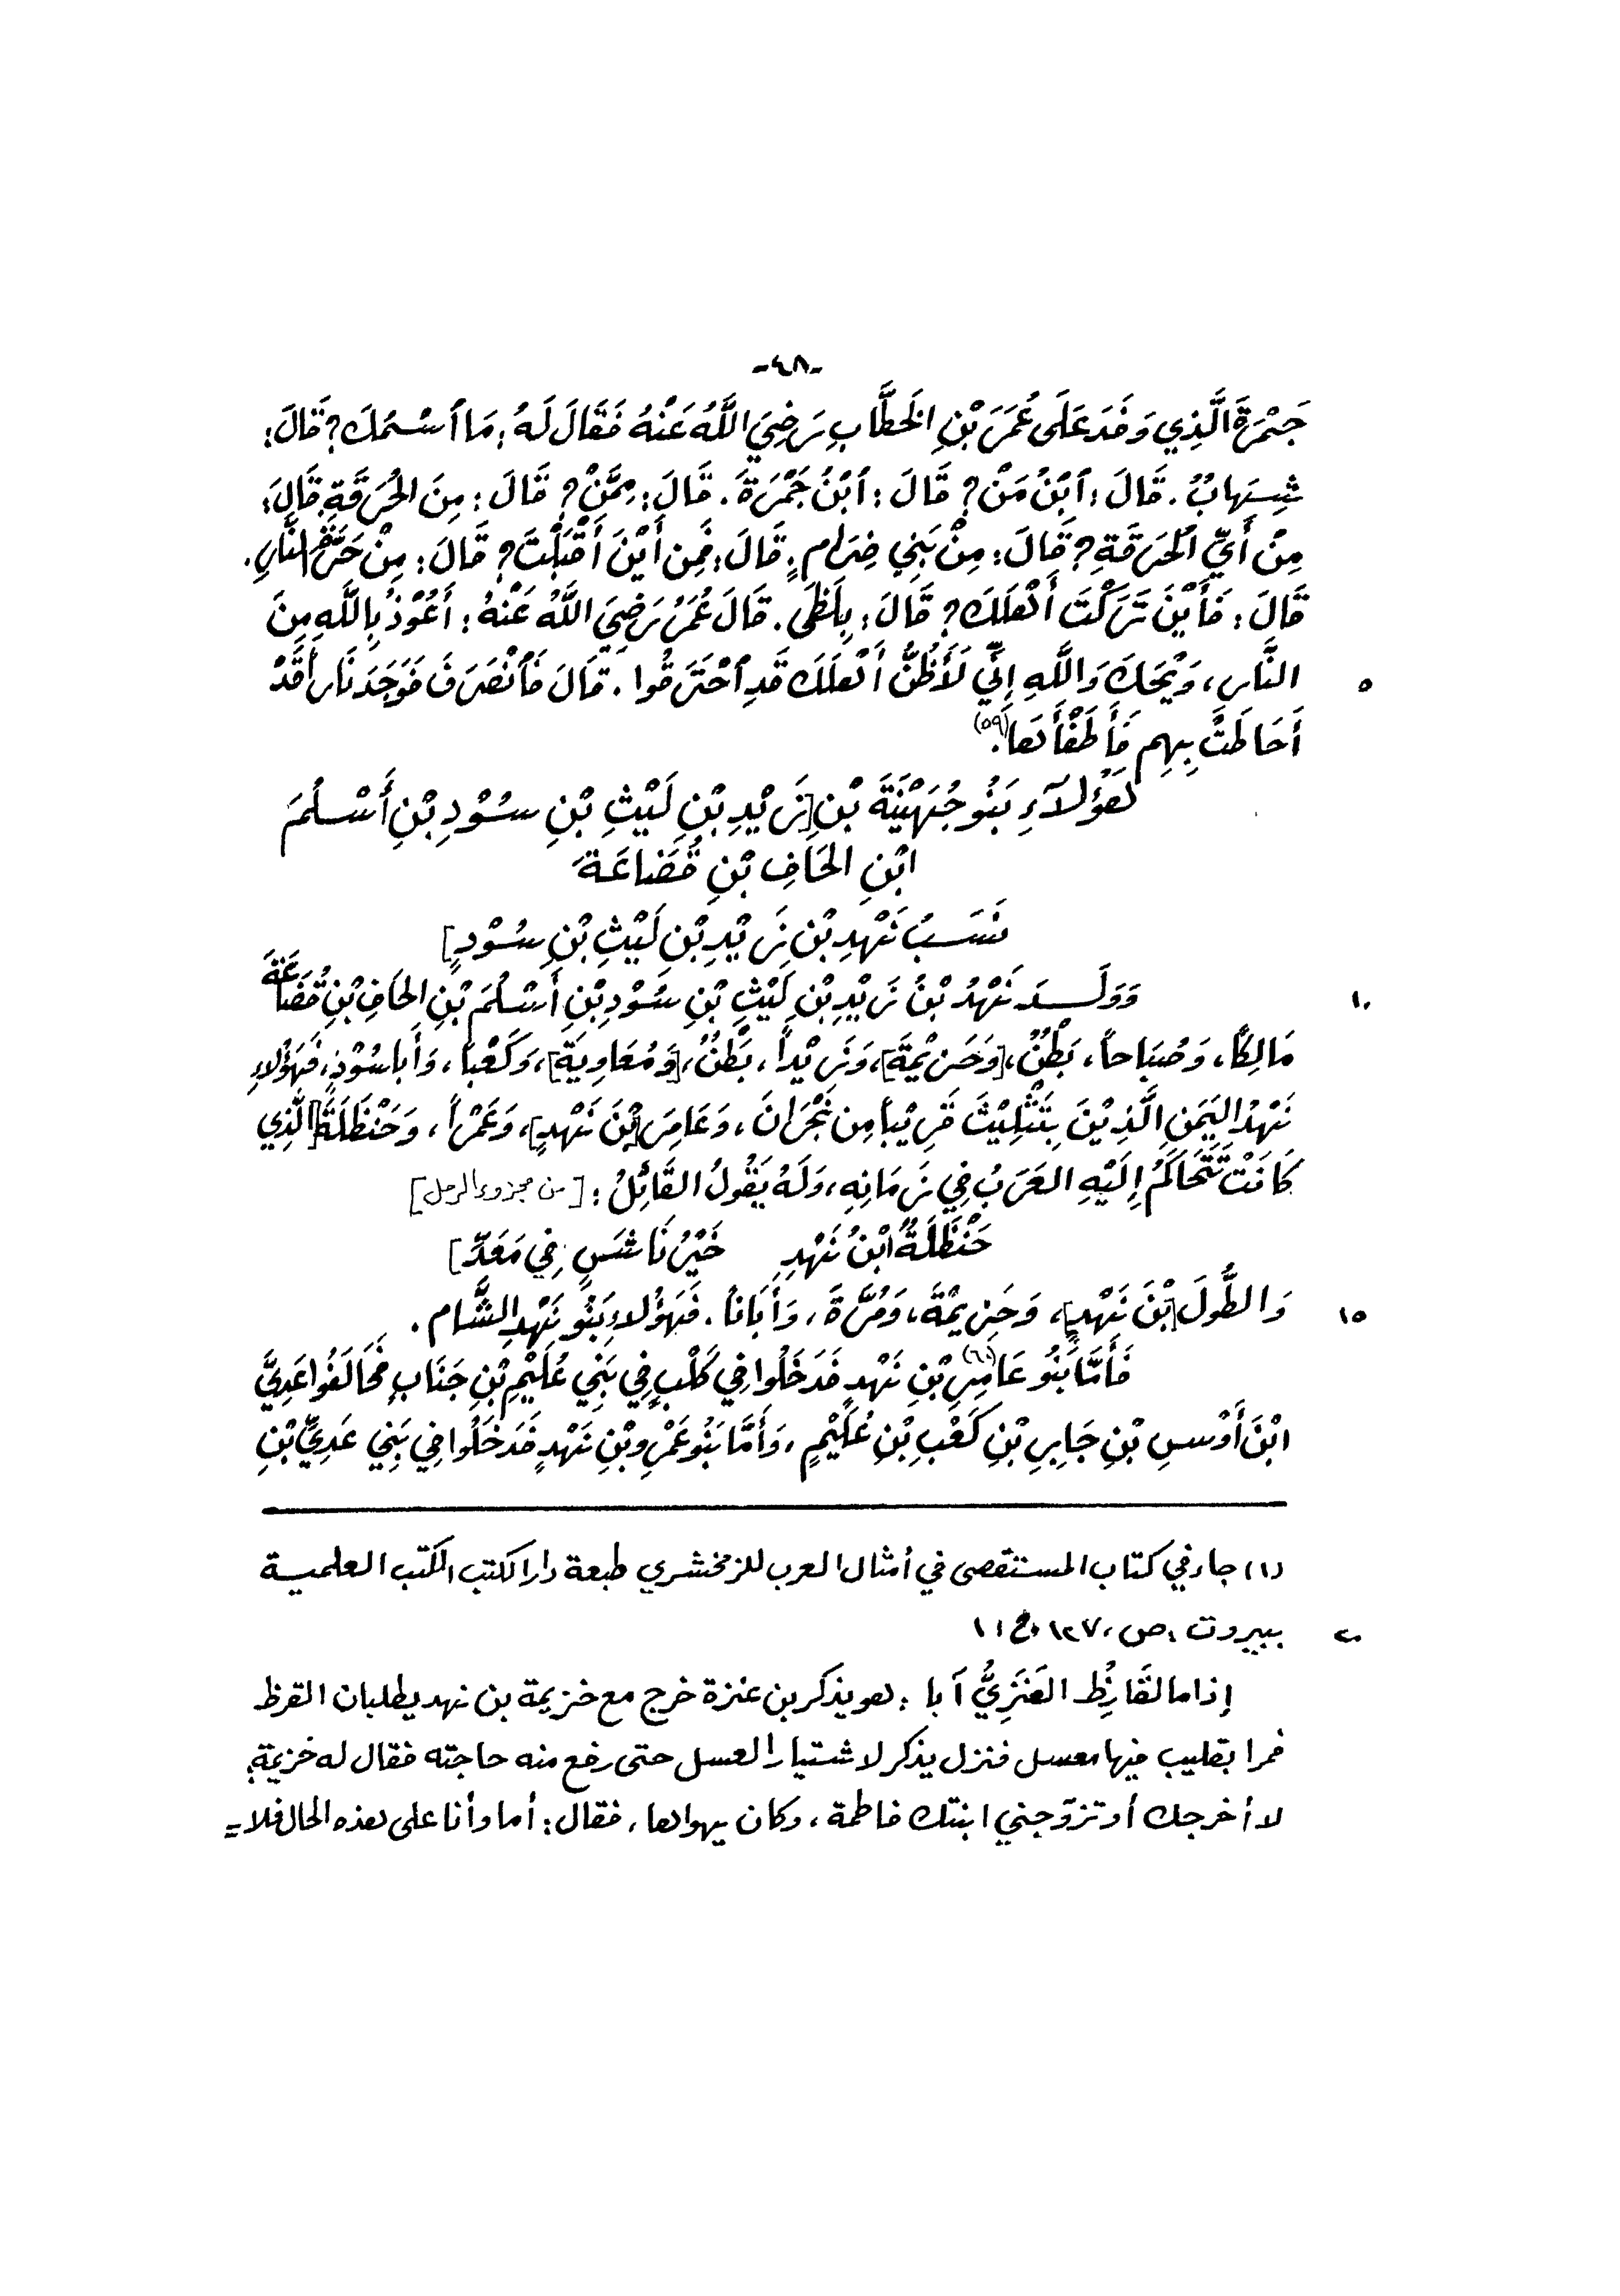 -٤٨-
جَمْرَةَ الَّذِي وَفَدَ عَلَى عُمَرَ بْنِ الخَطَّابِ رَضِيَ اللَّهُ عَنْهُ فَقَالَ لَهُ: مَا ٱسْمُكَ؟ قَالَ:
شِهَابٌ. قَالَ: ٱبْنُ مَنْ؟ قَالَ: ٱبْنُ جَمْرَةَ. قَالَ: مِمَّنْ؟ قَالَ: مِنَ الحُرَقَةِ. قَالَ:
مِنْ أَيِّ الحُرَقَةِ؟ قَالَ: مِنْ بَنِي ضِرَامٍ. قَالَ: فَمِن أَيْنَ أَقْبَلْتَ؟ قَالَ: مِنْ حَرَّةِ النَّارِ.
قَالَ: فَأَيْنَ تَرَكْتَ أَهلَكَ؟ قَالَ: بِلَظَى. قَالَ عُمَرُ رَضِيَ اللَّهُ عَنْهُ: أَعُوْذُ بِاللَّهِ مِنَ
النَّارِ، وَيْحَكَ وَاللَّهِ إِنِّي لَأَظُنُّ أَهلَكَ قَدِ ٱحْتَرَقُوا. قَالَ فَٱنْصَرَفَ فَوَجَدَ نَاراً قَدْ
٥
أَحَاطَتْ بِهِم فَأَطْفَأَهَا.(٥٩)
هَؤُلَآءِ بَنُو جُهَيْنَةَ بْنِ [زَيْدِ بْنِ لَيْثِ بْنِ سُوْدِ بْنِ أَسْلُمَ
ابْنِ الحَافِ بْنِ قُضَاعَةَ
نَسَبُ نَهْدِ بْنِ زَيْدِ بْنِ لَيْثِ بْنِ سُوْدٍ]
وَوَلَدَ نَهْدُ بْنُ زَيْدِ بْنِ لَيْثِ بْنِ سُوْدِ بْنِ أَسْلُمَ بْنِ الحَافِ بْنِ قُضَاعَةَ
١٠
مَالِكاً، وَصُبَاحاً، بَطْنٌ، [وَحَزِيْمَةَ]، وَزَيْداً، بَطْنٌ، [وَمُعَاوِيَةَ]، وَكَعْباً، وَأَبا سُوْدٍ، فَهَؤُلاءِ
نَهْدُ اليَمَنِ الَّذِيْنَ بِتَثْلِيْثَ قَرِيْباً مِن نَجْرَانَ، وَعَامِرَ [بْنَ نَهْدٍ]، وَعَمْراً، وَحَنْظَلَةَ [الَّذِي
كَانَتْ تَتَحَاكَمُ إِلَيْهِ العَرَبُ فِي زَمَانِهِ، وَلَهُ يَقُولُ القَائِلُ: [من مجزوء الرمل]
حَنْظَلَةُ ابْنُ نَهْدِ خَيْرُ نَاشَسٍ فِي مَعَدِّ]
وَالطُّولَ [بْنَ نَهْدٍ]، وَحَزِيْمَةَ، وَمُرَّةَ، وَأَبَاناً. فَهَؤُلاءِ بَنُو نَهْدِ الشَّام.
١٥
فَأَمَّا بَنُو عَامِرِ(٦٠) بْنِ نَهْدٍ فَدَخَلُوا فِي كَلْبٍ فِي بَنِي عُلَيْمِ بْنِ جَنَابٍ فَحَالَفُوا عَدِيَّ
ابْنَ أَوْسِ بْنِ جَابِرِ بْنِ كَعْبِ بْنِ عُلَيْمٍ، وَأَمَّا بَنُو عَمْرِو بْنِ نَهْدٍ فَدَخَلُوا فِي بَنِي عَدِيِّ بْنِ
(١) جاء في كتاب المستقصى في أمثال العرب للزمخشري طبعة دار الكتب الكتب العلمية
ببيروت: ص، ١٢٧ ج: ١
٢٠
إذا ما القَارِظُ العَنَزِيُّ آبا: هو يذكر بن عنزة خرج مع خزيمة بن نهد يطلبان القرظ
فمرا بقليب فيها معسل فنزل يذكر لاشتيار العسل حتى رفع منه حاجته فقال له خزيمة:
لا أخرجك أو تزوّجني ابنتك فاطمة، وكان يهواها، فقال: أما وأنا على هذه الحال فلا =